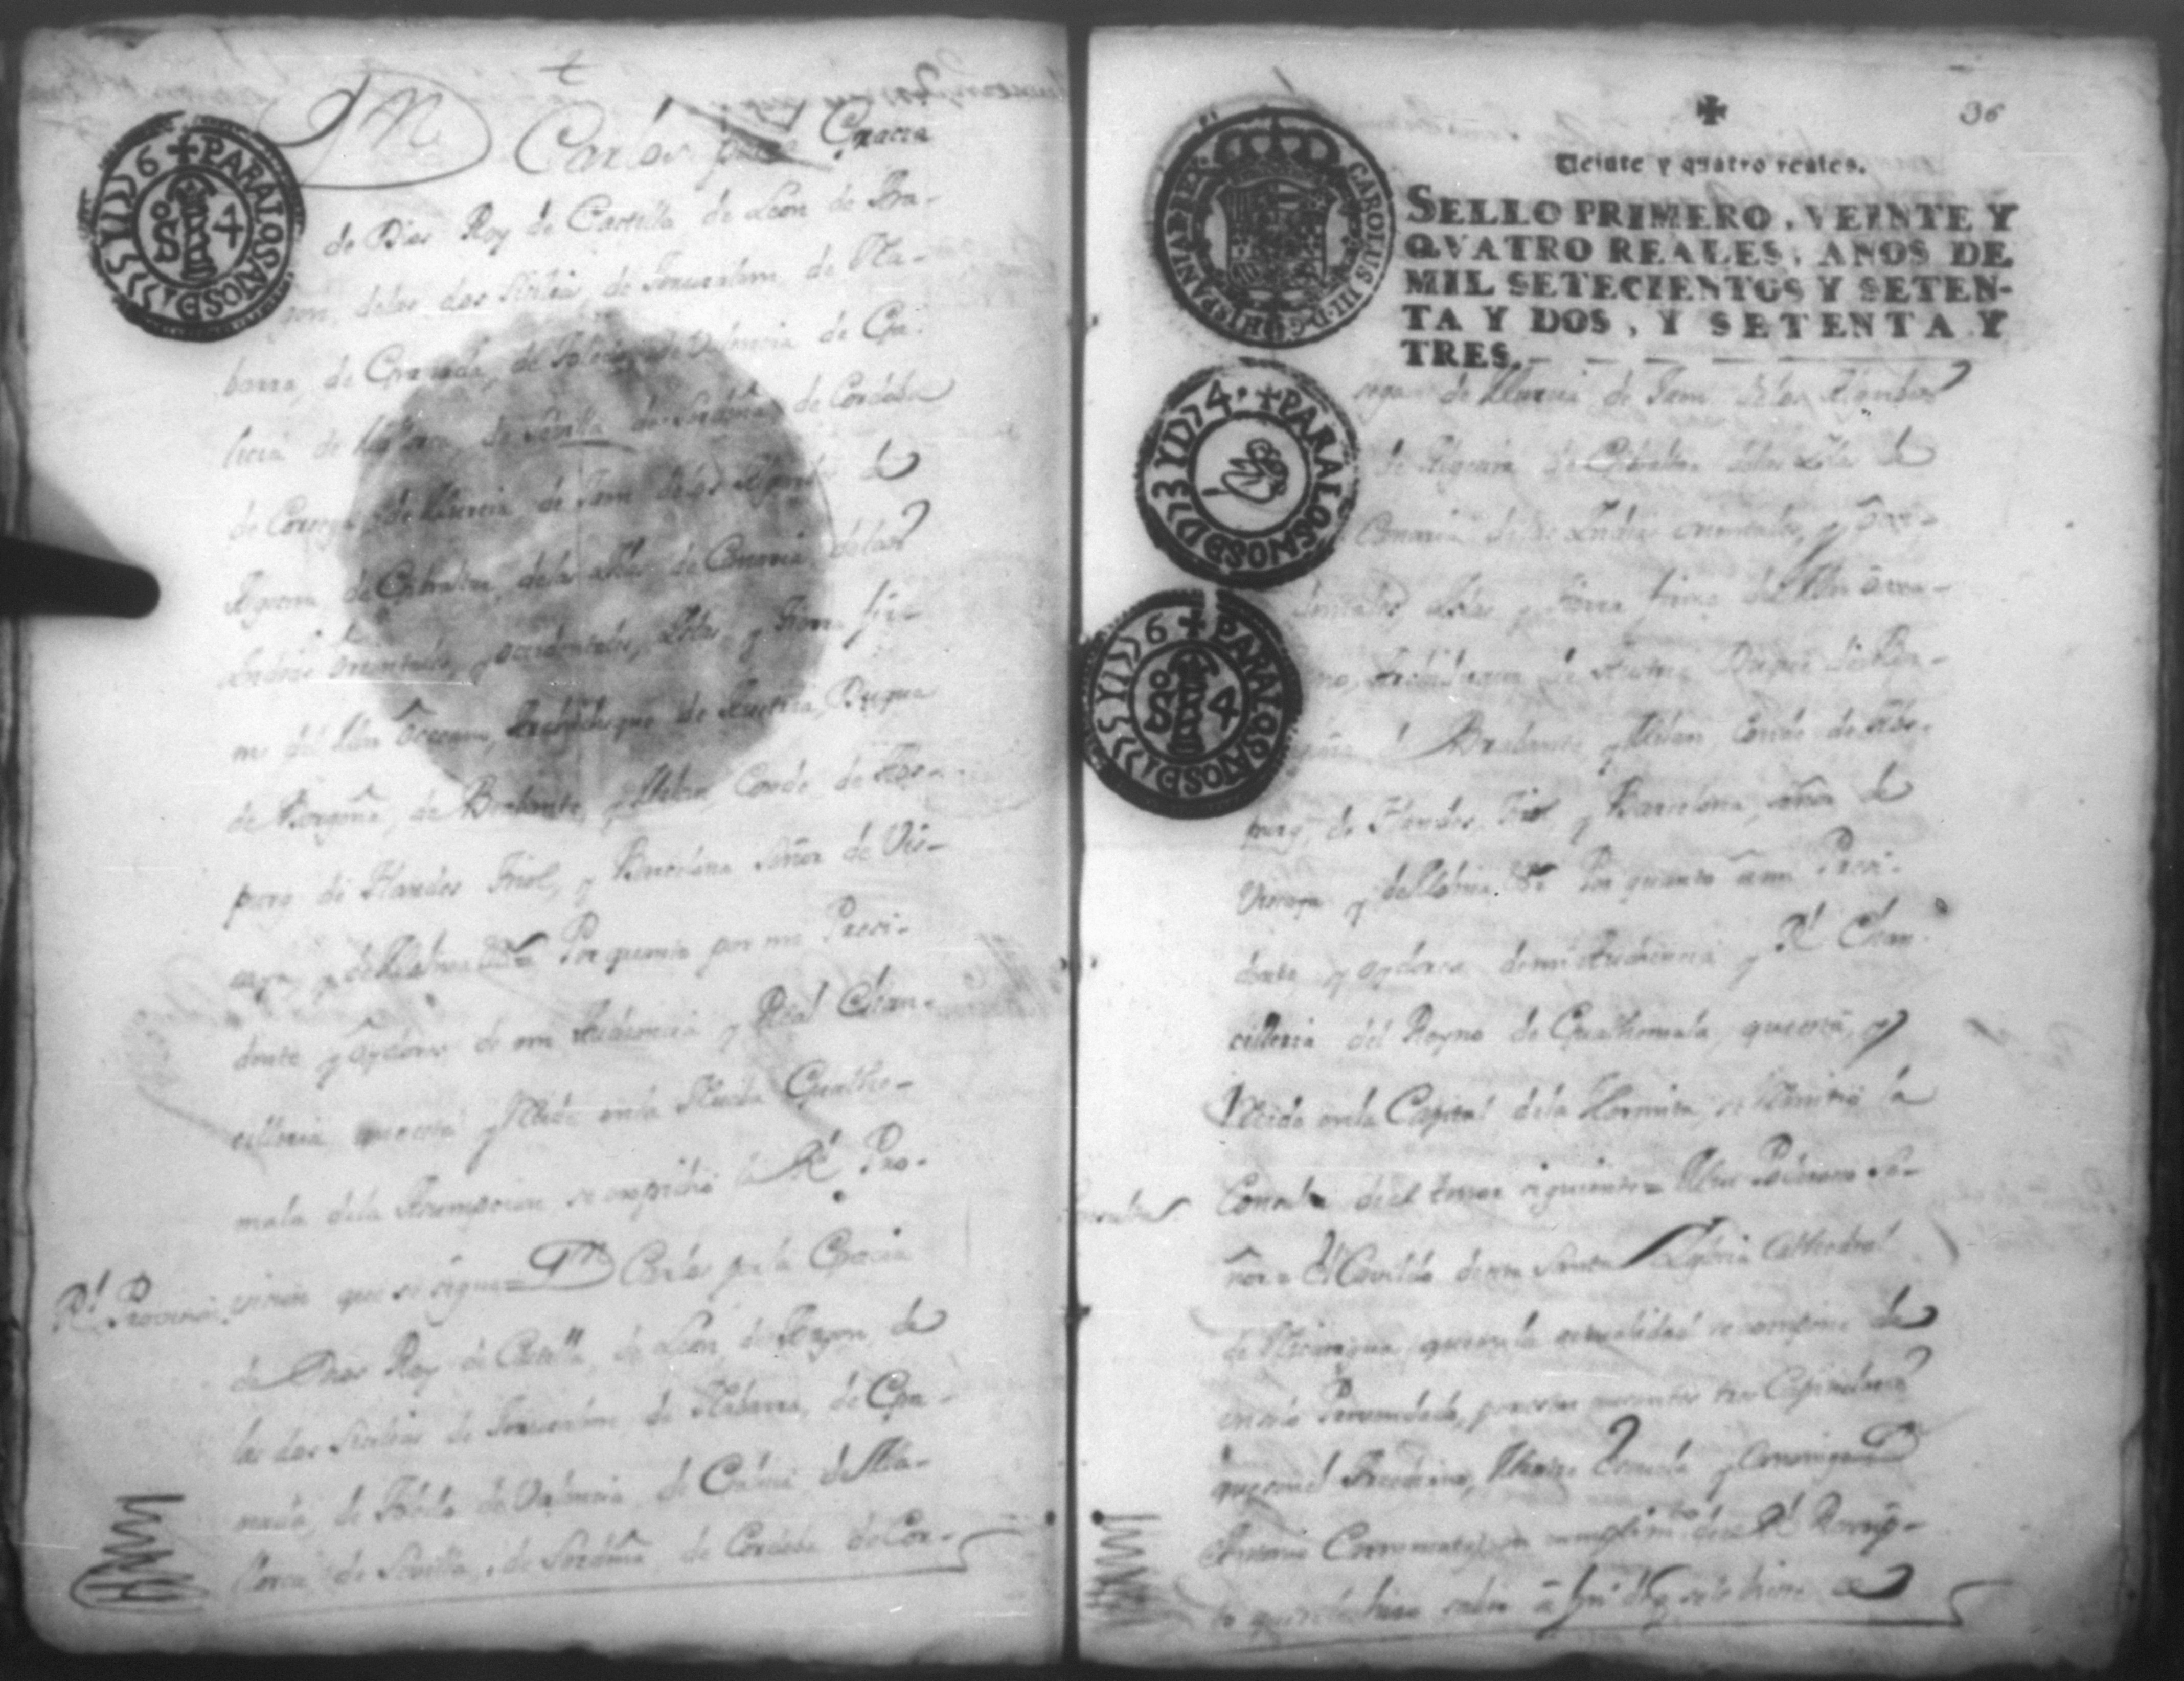 Dn Carlos por la Gracia
de Dios Rey de Castilla de Leon de Ara-
gon, delas dos Sicilias, de Jerusalem, de Na-
barra, de Granada, de Toledo, de Valencia de Ga-
licia de Mallorca, de Sevilla de Sardeña de Cordoba
de Corcega, de Murcia de Jaen delos Algarbes de
Algecira, de Gibraltar, delas Islas de Canaria delas
Indias orientales, y occidentales, Islas y Tierra fir-
me del Mar Occeano, Archiduque de Austria, Duque
de Borgoña, de Brabante, y Milan, Conde de Abs-
purg de Flandes Tirol, y Barcelona Señor de Vis-
caya y de Molina &a Por quanto por mi Presi-
dente y Oydores de mi Audiencia y Real Chan-
cilleria que esta y reside en la Nueba Guathe-
mala dela Assumpcion se expidio la Rl Pro-
Rl Provision
vision que se sigue = Dn Carlos por la Gracia
de Dios Rey de Castilla, de Leon, de Aragon, de
las dos Sicilias de Jerusalem de Nabarra, de Gra-
nada, de Toledo de Valencia de Galicia de Ma-
llorca, de Sevilla, de Sardeña, de Cordoba de Cor-
+ PARA LOS AÑOS D 1775 Y 1776
S 4
36
Veinte y quatro reales.
SELLO PRIMERO, VEINTE Y
QVATRO REALES, AÑOS DE
MIL SETECIENTOS Y SETEN-
TA Y DOS, Y SETENTA Y
TRES.
CAROLUS III D G HISPANIAR REX
+ PARA LOS AÑOS D 73 Y D 74
+ PARA LOS AÑOS D 1775 Y 1776
S 4
cega de Murcia de Jaen delos Algarbes
de Algecira de Gibraltar delas Islas de
Canaria delas Indias orientales, y occi-
dentales Islas y Tierra firme del Mar Occea-
no, Archiduque de Austria Duque de Bor-
goña de Brabante y Milan Conde de Abs-
purg, de Flandes, Tirol y Barcelona, señor de
Viscaya y de Molina &a Por quanto a mi Presi-
dente y oydores de mi Audiencia y Rl Chan-
cilleria del Reyno de Guathemala, que está, y
reside en la Capital dela Hermita, se remitió la
Consulta
Consulta de el tenor siguiente = Muy Poderoso Se-
ñor = El Cavildo de esta Santa Iglesia Cathedral
de Nicaragua, que en la actualidad se compone de
que son el Arcediano, Maestre Escuela y Canonigo Dn